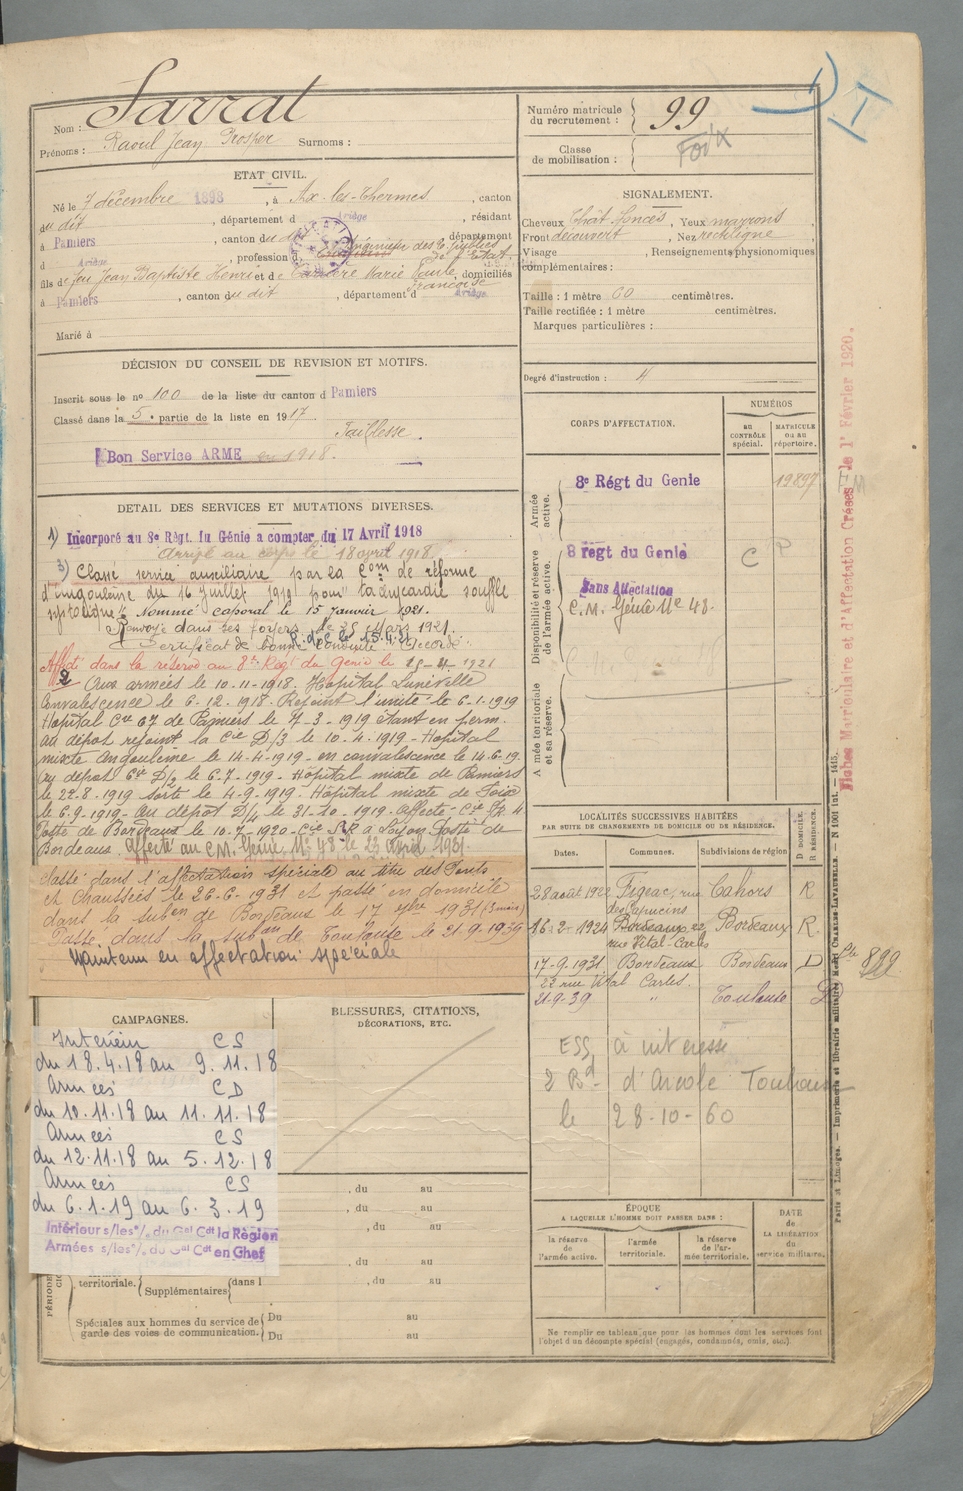 Nom : Sarrat
Prénoms : Raoul Jean Prosper Surnoms :
ETAT CIVIL.
Né le 7 décembre 1898, à Ax-les-Thermes, canton
du dit, département d Ariège, résidant
à Pamiers, canton du département
d Ariège, profession d Ingénieur des T. publics
de l'Etat.
fils de feu Jean Baptiste Henri et de Marie Paule, domiciliés
Françoise
à Pamiers, canton du dit, département d Ariège
Marié à
DÉCISION DU CONSEIL DE REVISION ET MOTIFS.
Inscrit sous le nº 100 de la liste du canton d Pamiers
Classé dans la 5e partie de la liste en 1917
Faiblesse.
Bon Service ARME en 1918.
DETAIL DES SERVICES ET MUTATIONS DIVERSES.
1) Incorporé au 8e Régt. du Génie a compter du 17 Avril 1918
Arrivé au corps le 18 avril 1918
3) Classé service auxiliaire par la Com de réforme
d'Angoulême du 16 juillet 1919 pour tachycardie souffle
systolique". Nommé caporal le 15 Janvier 1921.
Renvoyé dans ses foyers le 25 Mars 1921.
R. d. c. le 15.4.21
Certificat de bonne conduite Accordé.
Affecté dans la réserve au 8e Rég du Génie le 15-4-1921
2 Aux armées le 10-11-1918. Hôpital Lunéville
Convalescence le 6-12-1918. Rejoint l'unité le 6-1-1919
Hôpital Cre 67 de Pamiers le 7-3-1919 étant en perm.
Au dépôt rejoint la Cie D/3 le 10-4-1919 - Hôpital
mixte Angoulême le 14-4-1919 - en convalescence le 14-6-19.
Au dépôt Cie D/2 le 6-7-1919 - Hôpital mixte de Pamiers
le 22-8-1919 sorti le 4-9-1919. Hôpital mixte de Foix
le 6-9-1919 - Au dépôt D/4 le 31-10-1919 - affecté Cie
Poste de Bordeaux le 10-7-1920 - Cie à Lyon Poste de
Bordeaux. Affecté au C.M. Génie Nº 48 le 23 avril 1931.
Passé dans l'affectation spéciale au titre des Ponts
et Chaussées le 26-6-1931 et passé en domicile
dans la subon de Bordeaux le 17 7bre 1931 (3 mois)
Passé dans la subon de Toulouse le 21-9-1939
Maintenu en affectation spéciale
CAMPAGNES.
Intérieur CS
du 18.4.18 au 9.11.18
Armées CD
du 10.11.18 au 11.11.18
Armées CS
du 12.11.18 au 5.12.18
Armées CS
du 6.1.19 au 6.3.19
Intérieur s/les °/. du Gal Cdt la Région
Armées s/les °/. du Gal Cdt en Chef
BLESSURES, CITATIONS,
DÉCORATIONS, ETC.
, du au
, du au
, du au
, du au
territoriale. Supplémentaires dans l , du au
Spéciales aux hommes du service de
garde des voies de communication.
Du au
Du au
Numéro matricule
du recrutement : 99
Classe
de mobilisation : Foix
SIGNALEMENT.
Cheveux Chât. foncés, Yeux marrons
Front découvert, Nez rectiligne
Visage , Renseignements physionomiques
complémentaires :
Taille : 1 mètre 60 centimètres.
Taille rectifiée : 1 mètre centimètres.
Marques particulières :
Degré d'instruction : 4
CORPS D'AFFECTATION.
NUMÉROS
au CONTRÔLE spécial.
MATRICULE ou au répertoire.
Armée active.
8e Régt du Genie 19897
Disponibilité et réserve de l'armée active.
8 régt du Genie C P
Sans Affectation
C.M. Génie Nº 48.
Armée territoriale et sa réserve.
LOCALITÉS SUCCESSIVES HABITÉES
PAR SUITE DE CHANGEMENTS DE DOMICILE OU DE RÉSIDENCE.
D DOMICILE. R RÉSIDENCE.
Dates. Communes. Subdivisions de région
28 août 1922 Figeac, rue Cahors R
des Capucins
16-2-1924 Bordeaux 22 Bordeaux R.
rue Vital-Carles
17-9-1931 Bordeaux Bordeaux D
22 rue Vital Carles.
21-9-39 " Toulouse D
ESS à intéressé
2 Bd d'Arcole Toulouse
le 28-10-60
ÉPOQUE
A LAQUELLE L'HOMME DOIT PASSER DANS :
la réserve de l'armée active.
l'armée territoriale.
la réserve de l'armée territoriale.
DATE de LA LIBÉRATION du service militaire.
Ne remplir ce tableau que pour les hommes dont les services font
l'objet d'un décompte spécial (engagés, condamnés, omis, etc.).
Fiches Matriculaire et d'Affectation Créées le 1r Février 1920.
Paris et Limoges. — Imprimerie et librairie militaires Henri CHARLES-LAVAUZELLE. — N° 1001 int. — 1415.
899